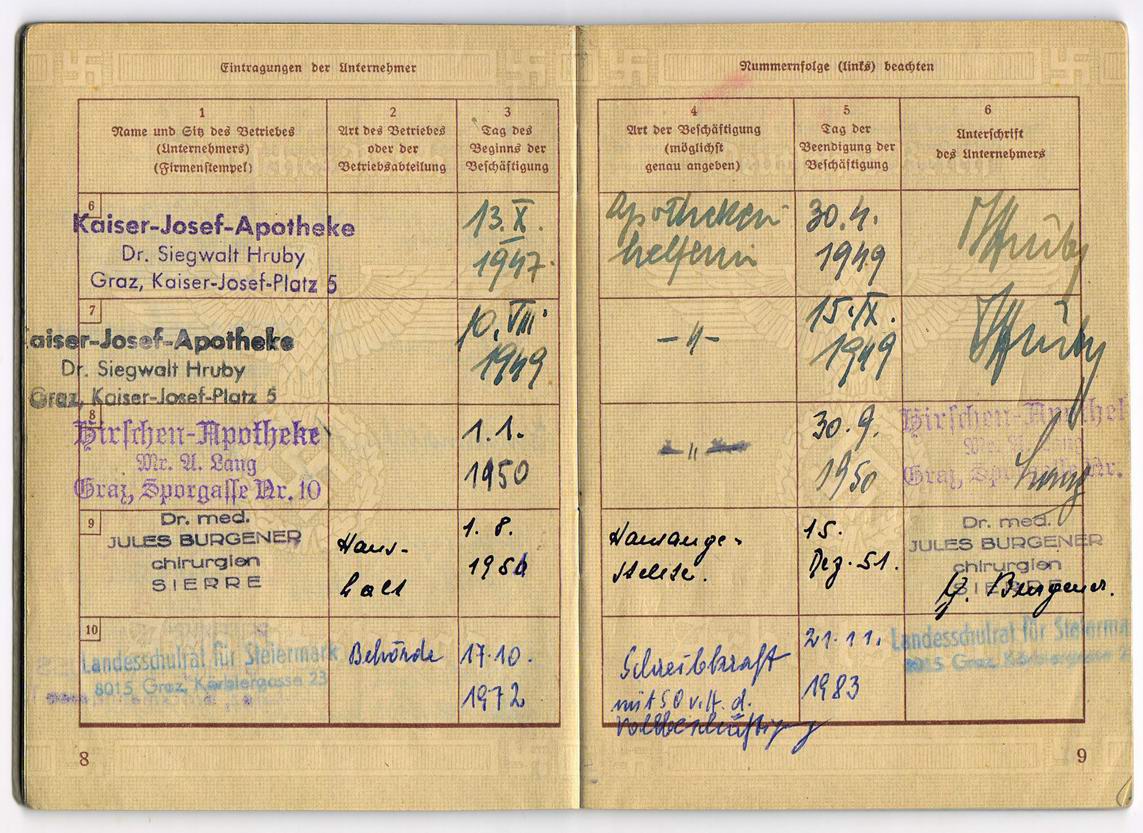 Eintragungen der Unternehmer
1
Name und Sitz des Betriebes
(Unternehmers)
(Firmenstempel)
2
Art des Betriebes
oder der
Betriebsabteilung
3
Tag des
Beginns der
Beschäftigung
6
Kaiser-Josef-Apotheke
Dr. Siegwalt Hruby
Graz, Kaiser-Josef-Platz 5
13. X.
1947.
7
aiser-Josef-Apotheke
Dr. Siegwalt Hruby
Graz, Kaiser-Josef-Platz 5
10. VIII.
1949
8
Hirschen-Apotheke
Mr. A. Lang
Graz, Sporgasse Nr. 10
1.1.
1950
9
Dr. med.
JULES BURGENER
chirurgien
SIERRE
Haus-
halt
1. 8.
1951
10
Landesschulrat für Steiermark
8015 Graz, Körblergasse 23
Behörde
17.10.
1972
8
Nummernfolge (links) beachten
4
Art der Beschäftigung
(möglichst
genau angeben)
5
Tag der
Beendigung der
Beschäftigung
6
Unterschrift
des Unternehmers
Apotheken
helferin
30.4.
1949
Hruby
-"-
15. IX.
1949
Hruby
"
30.9.
1950
Hirschen-Apothek
Mr. A. Lang
Graz, Sporgasse Nr.
Lang
Hausange-
stellte.
15.
Dez. 51.
Dr. med.
JULES BURGENER
chirurgien
SIERRE
J. Burgener.
Schreibkraft
mit 50 v.H. d.
Vollbeschäftigung
21.11.
1983
Landesschulrat für Steierma
8015 Graz, Körblergasse 2
9